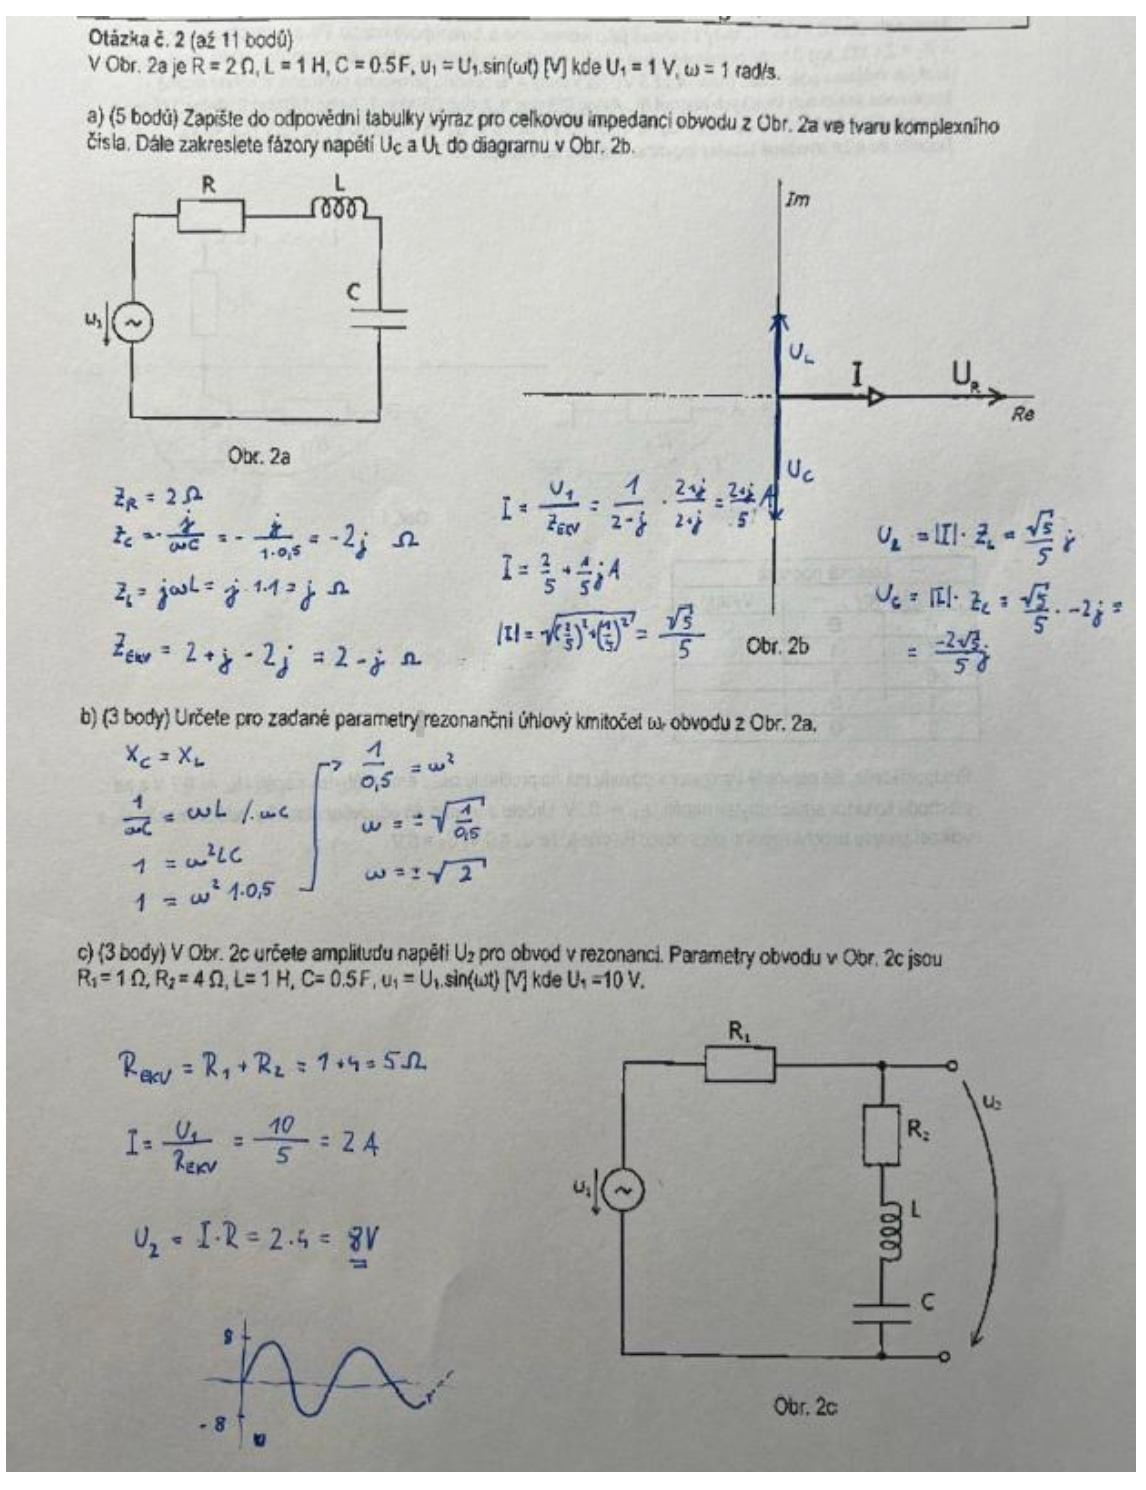 Otázka č. 2 (až 11 bodů)
V Obr. 2a je R = 2 Ω, L = 1 H, C = 0.5 F, u₁ = U₁.sin(ωt) [V] kde U₁ = 1 V, ω = 1 rad/s.
a) (5 bodů) Zapište do odpovědní tabulky výraz pro celkovou impedanci obvodu z Obr. 2a ve tvaru komplexního
čísla. Dále zakreslete fázory napětí Uc a UL do diagramu v Obr. 2b.
R L
C
u₁
~
Obr. 2a
Im
U_L
I U_R
Re
U_C
Obr. 2b
Z_R = 2 Ω
Z_C = -j/ωC = -j/1·0,5 = -2j Ω
Z_L = jωL = j·1·1 = j Ω
Z_EKV = 2 + j - 2j = 2 - j Ω
I = U₁/Z_EKV = 1/2-j · 2+j/2+j = 2+j/5 A
I = 2/5 + 1/5 j A
|I| = √(2/5)²+(1/5)² = √5/5
U_L = |I|· Z_L = √5/5 j
U_C = |I|· Z_C = √5/5 · -2j =
= -2√5/5 j
b) (3 body) Určete pro zadané parametry rezonanční úhlový kmitočet ωr obvodu z Obr. 2a.
X_C = X_L
1/ωC = ωL /·ωC
1 = ω²LC
1 = ω² 1·0,5
1/0,5 = ω²
ω = ±√1/0,5
ω = ±√2
c) (3 body) V Obr. 2c určete amplitudu napětí U₂ pro obvod v rezonanci. Parametry obvodu v Obr. 2c jsou
R₁= 1 Ω, R₂= 4 Ω, L= 1 H, C= 0.5 F, u₁ = U₁.sin(ωt) [V] kde U₁ =10 V.
R_EKV = R₁ + R₂ = 1+4 = 5 Ω
I = U₁/R_EKV = 10/5 = 2 A
U₂ = I·R = 2·4 = 8V
8
-8
R₁
u₂
R₂
u₁
~
L
C
Obr. 2c